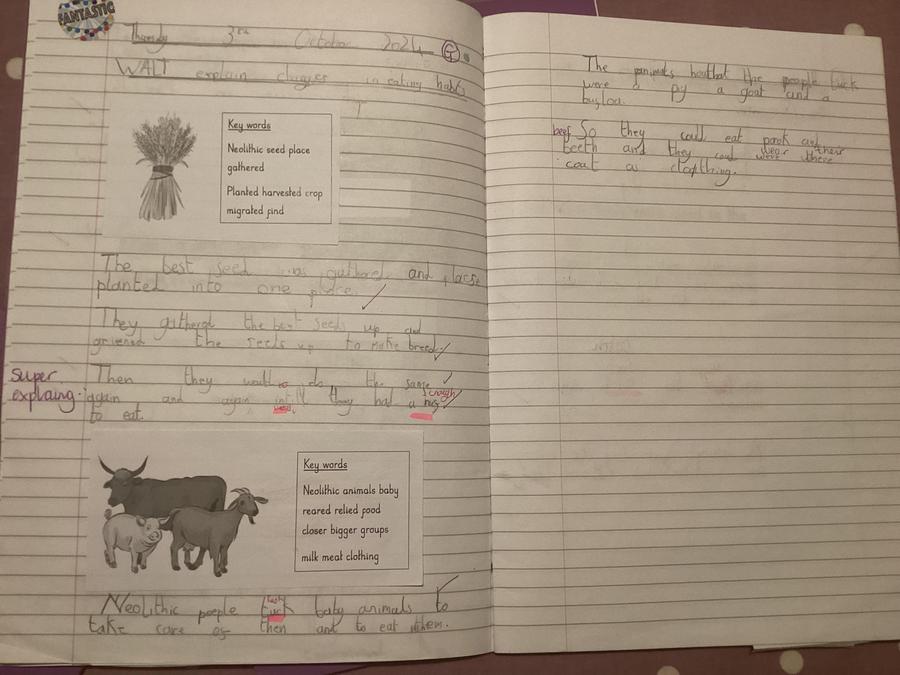 FANTASTIC
Thursday 3rd October 2024 G
WALT explain changes in eating habits
Key words
Neolithic seed place
gathered
Planted harvested crop
migrated find
The best seed was gathered and
planted into one place.
They gatherd the best seeds up and
the seeds up to make breed
Then they would do the same
super
explaing.
again and again intill they had a
enough
to eat.
Key words
Neolithic animals baby
reared relied food
closer bigger groups
milk meat clothing
Neolithic people tuck baby animals to
take care of then and to eat them.
The the people tuck
were a py a goat and a
So they could eat pork and
beef
beeth and they could wear their
there
coat a clothing.